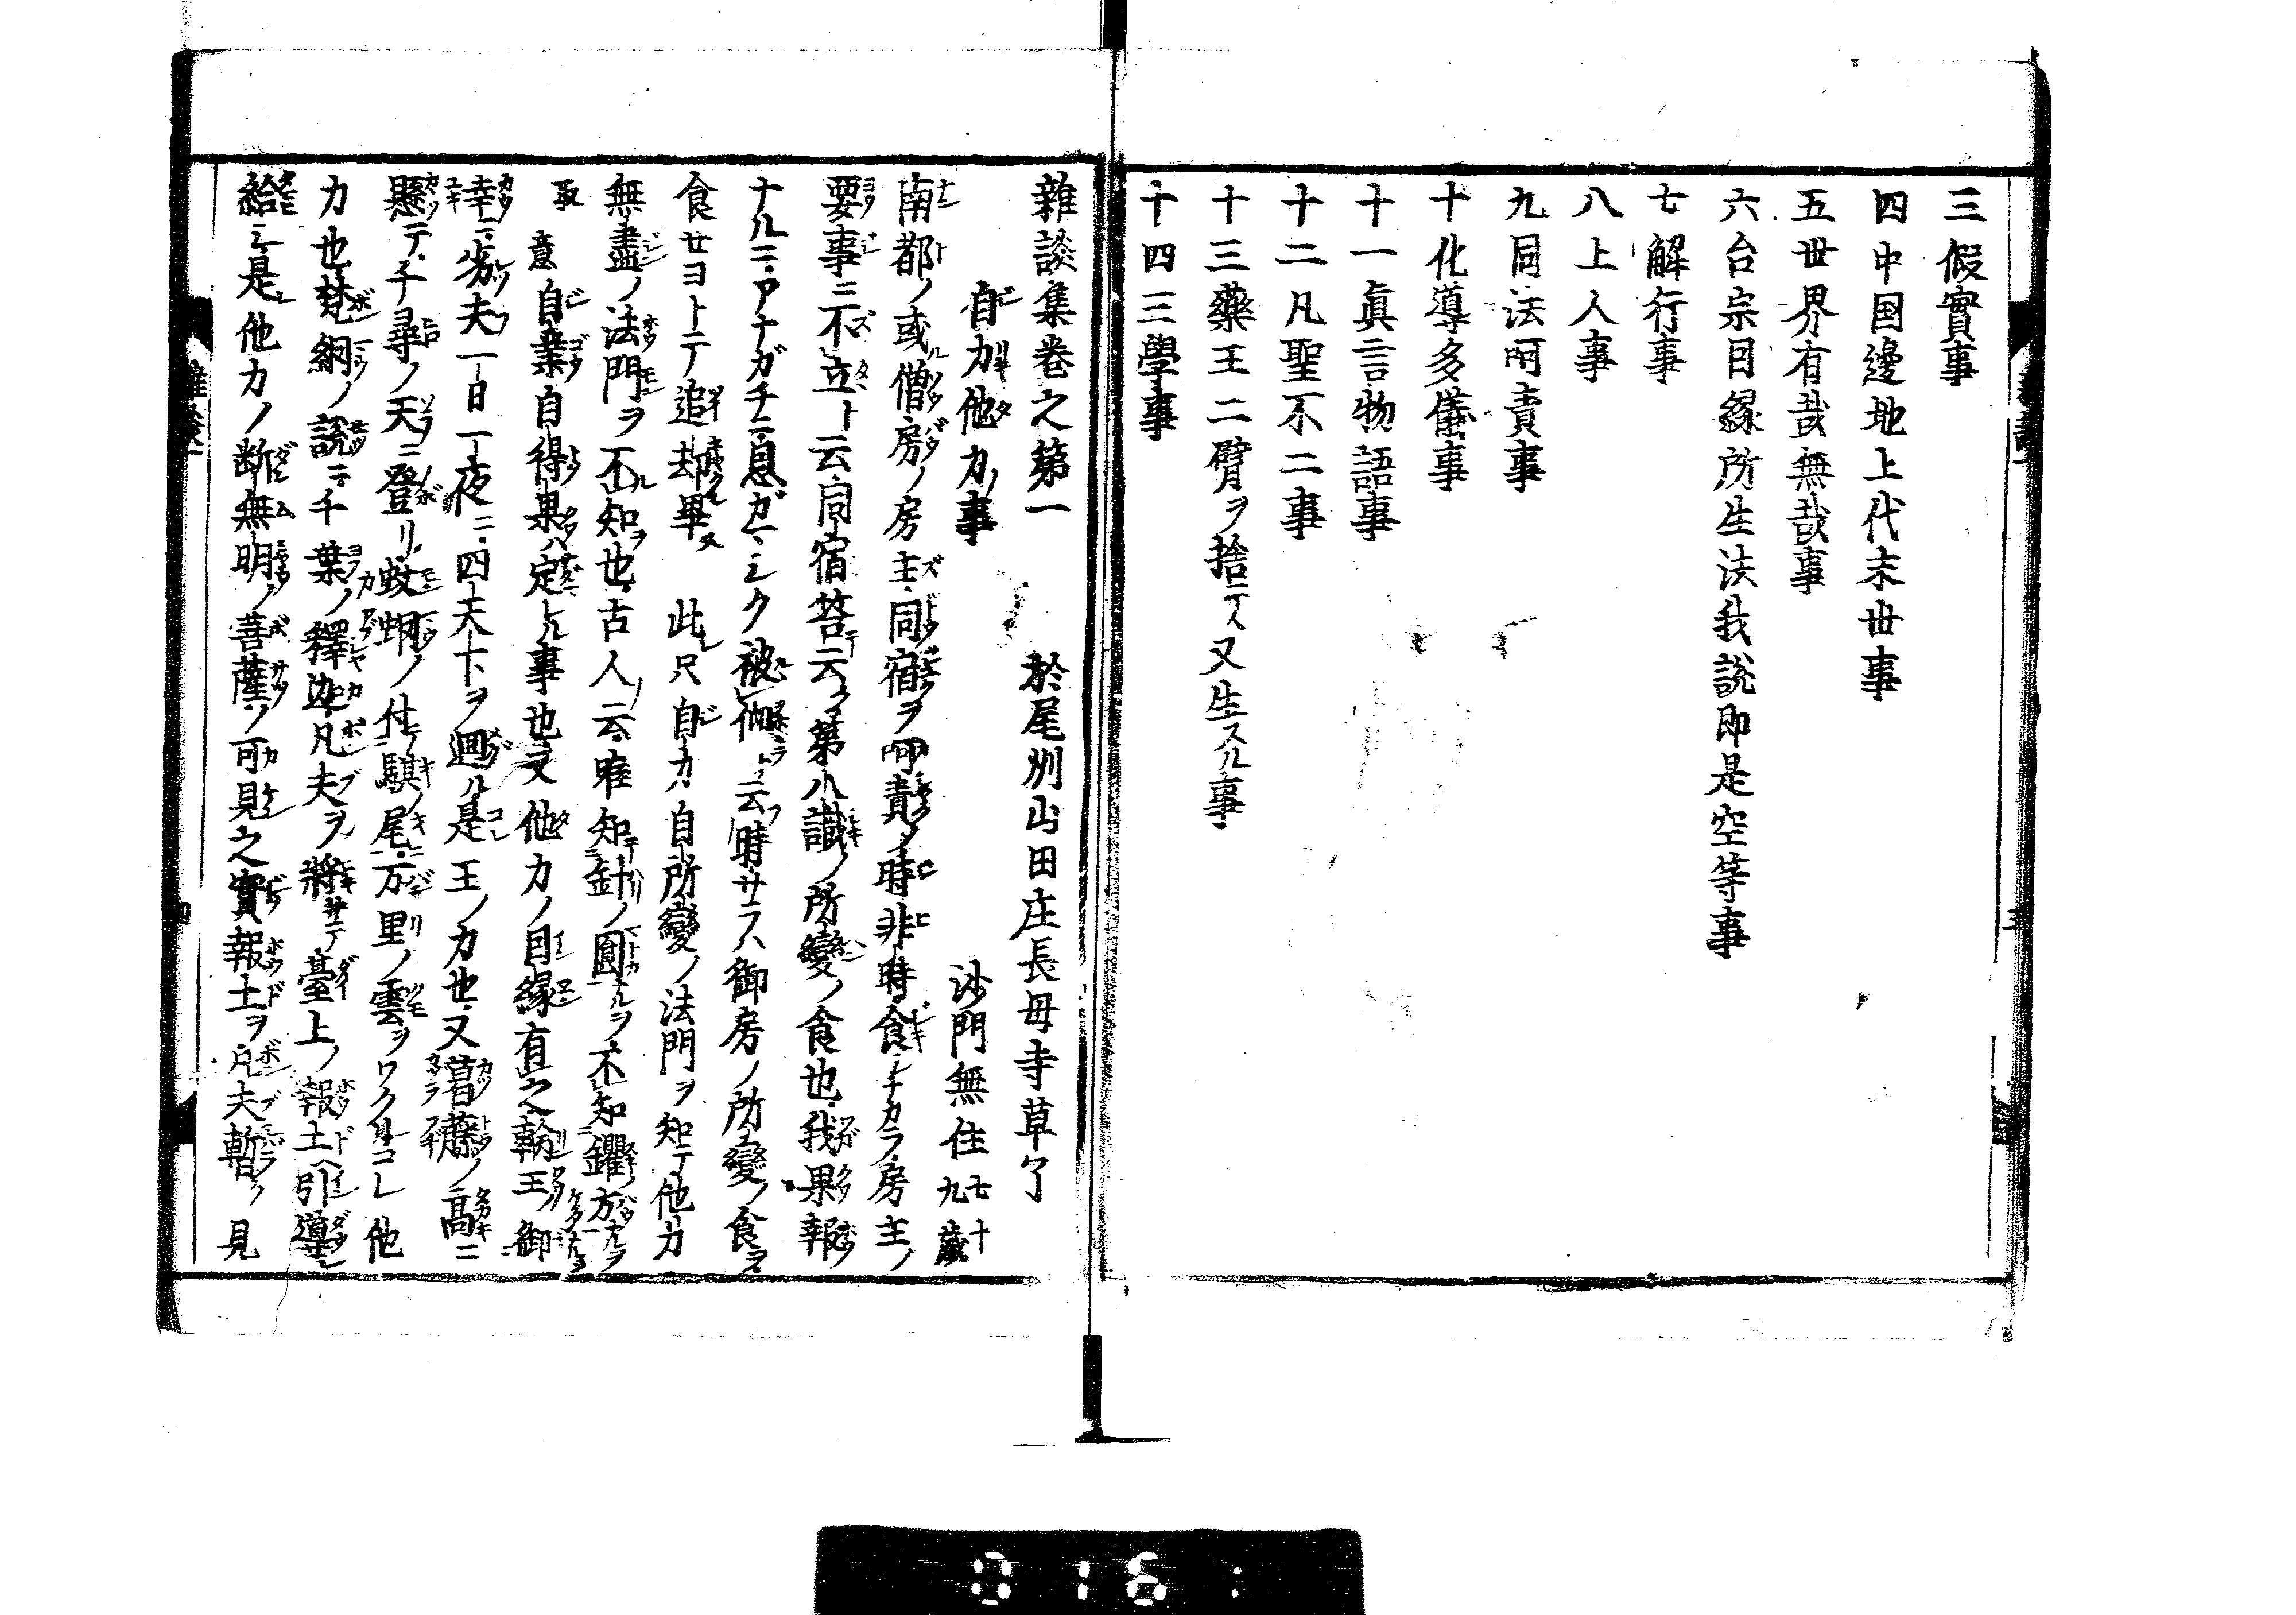 三假實事
四中国邊地上代末世事
五世界有哉無哉事
六台宗因縁所生法我説即是空等事
七解行事
八上人事
九同法呵責事
十化導多儀事
十一眞言物語事
十二凡聖不二事
十三藥王二臂ヲ捨テ又生スル事
十四三學事
雜談集巻之第一　於尾州山田庄長母寺草了
自力他力事　沙門無住七十九歳
南都ノ或ル僧房ノ房主同宿ヲ呵責ノ時非時食シナカラ房主ノ
要事ニ不立ト云同宿答テ云ク第八識ノ所變ノ食也我果報
ナルニアナガチニ息ガマシク被仰ト云フ時サラハ御房ノ所變ノ食ヲ
食セヨトテ追却畢ヌ　此レ只自力自所變ノ法門ヲ知テ他力
無盡ノ法門ヲ不ル知ヲ也古人ノ云唯知テ針ノ圓ナルヲ不知钁方ナルヲ
取意　自業自得果ハ定レル事也又他力ノ因縁有之輪王ノ御
幸ニ劣夫一日一夜ニ四天下ヲ廻ル是王ノ力也又葛藤ノ高ニ
懸テ千尋ノ天ニ登リ蚊蝄ノ付驥尾ニ万里ノ雲ヲワクルコレ他
力也梵網ノ説ニ千葉ノ釋迦凡夫ヲ將サテ臺上ノ報土ヘ引導シ
給ヒシ是他力ノ断無明ノ菩薩ノ可見之實報土ヲ凡夫暫ク見